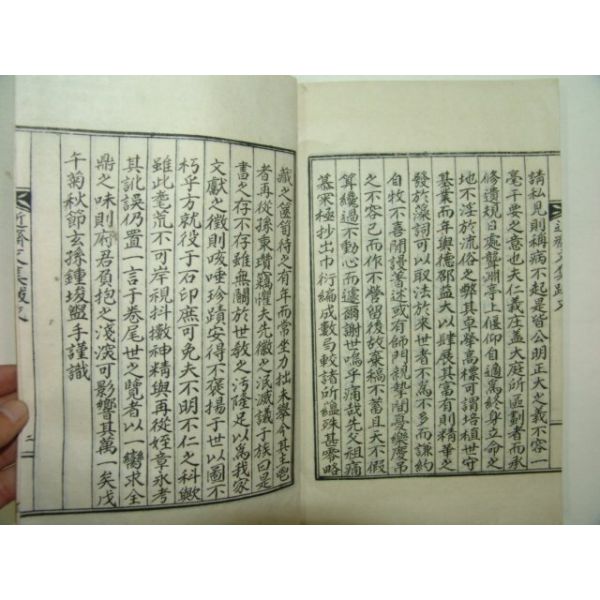 請私見則稱病不起是皆公明正大之義不容一
毫干妄之意也夫仁義庄蓋大庭所區劃者而承
修遺規日處聾淵亭上偃仰自適爲終身立命之
地不淫於流俗之弊其卓犖高標可謂培植世守
基業而年與德邵益大以肆展其富有則精華之
發於藻詞可以取法於來世者不爲不多而謙約
自牧不喜閒謾著述或有師門親摯間憂樂慶吊
之不容已而作不營留後故棄稿不蓄且天不假
筭纔過不動心而遽爾謝世嗚乎痛哉先父祖痛
慕宷極抄出巾衍編成數局較諸所蘊殊甚零略
藏之篋笥待之有年而常坐力拙未繫今其主鬯
者再從孫東瓚竊懼夫先徽之泯滅議于族曰是
書之存不存雖無關於世敎之汚隆足以爲我家
文獻之徵則咳唾珍蹟安得不褒揚于世以圖不
朽乎方就役于石印庶可免夫不明不仁之科歟
雖此耄荒不可岸視抖擻神精與再從姪章永考
其訛誤仍置一言于卷尾世之覽者以一臠求全
鼎之味則府君負抱之淺深可影響其萬一矣戊
午菊秋節玄孫鍾堎盥手謹識
近齋文集跋文
二